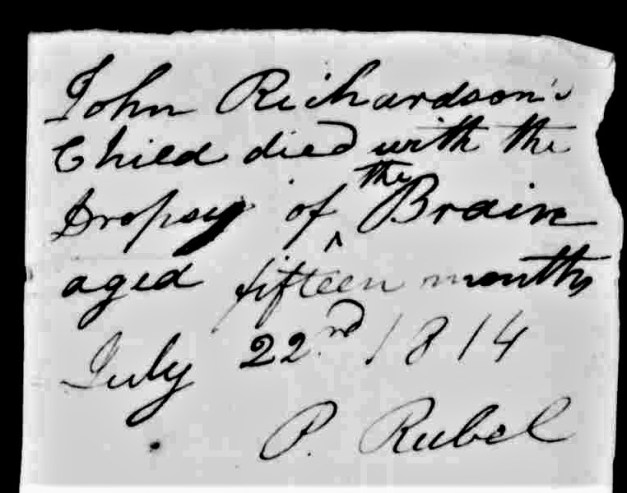 John Richardson's
Child died with the
Dropsy of ^the Brain
aged fifteen months
July 22.nd 1814
P. Rubel